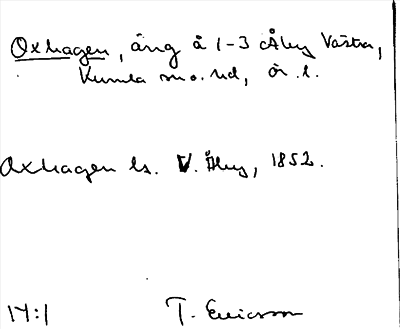 Oxhagen, äng å 1-3 Åby Västra,
Kumla sn o. hd, ör. l.
Oxhagen ls. V. Åby, 1852.
14:1 T. Ericsson